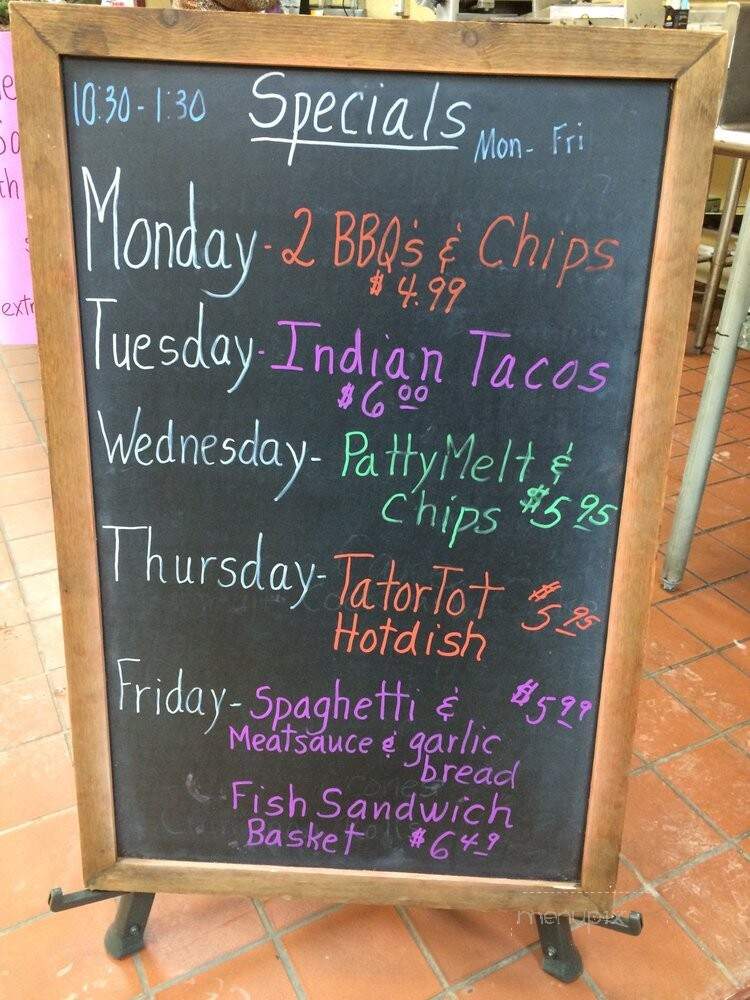 10:30 - 1:30 Specials Mon - Fri
Monday - 2 BBQ's & Chips
$4.99
Tuesday - Indian Tacos
$6.00
Wednesday - Patty Melt &
Chips $5.95
Thursday - TatorTot $5.95
Hotdish
Friday - Spaghetti & $5.99
Meatsauce & garlic
bread
Fish Sandwich
Basket $6.49
menupix
ext